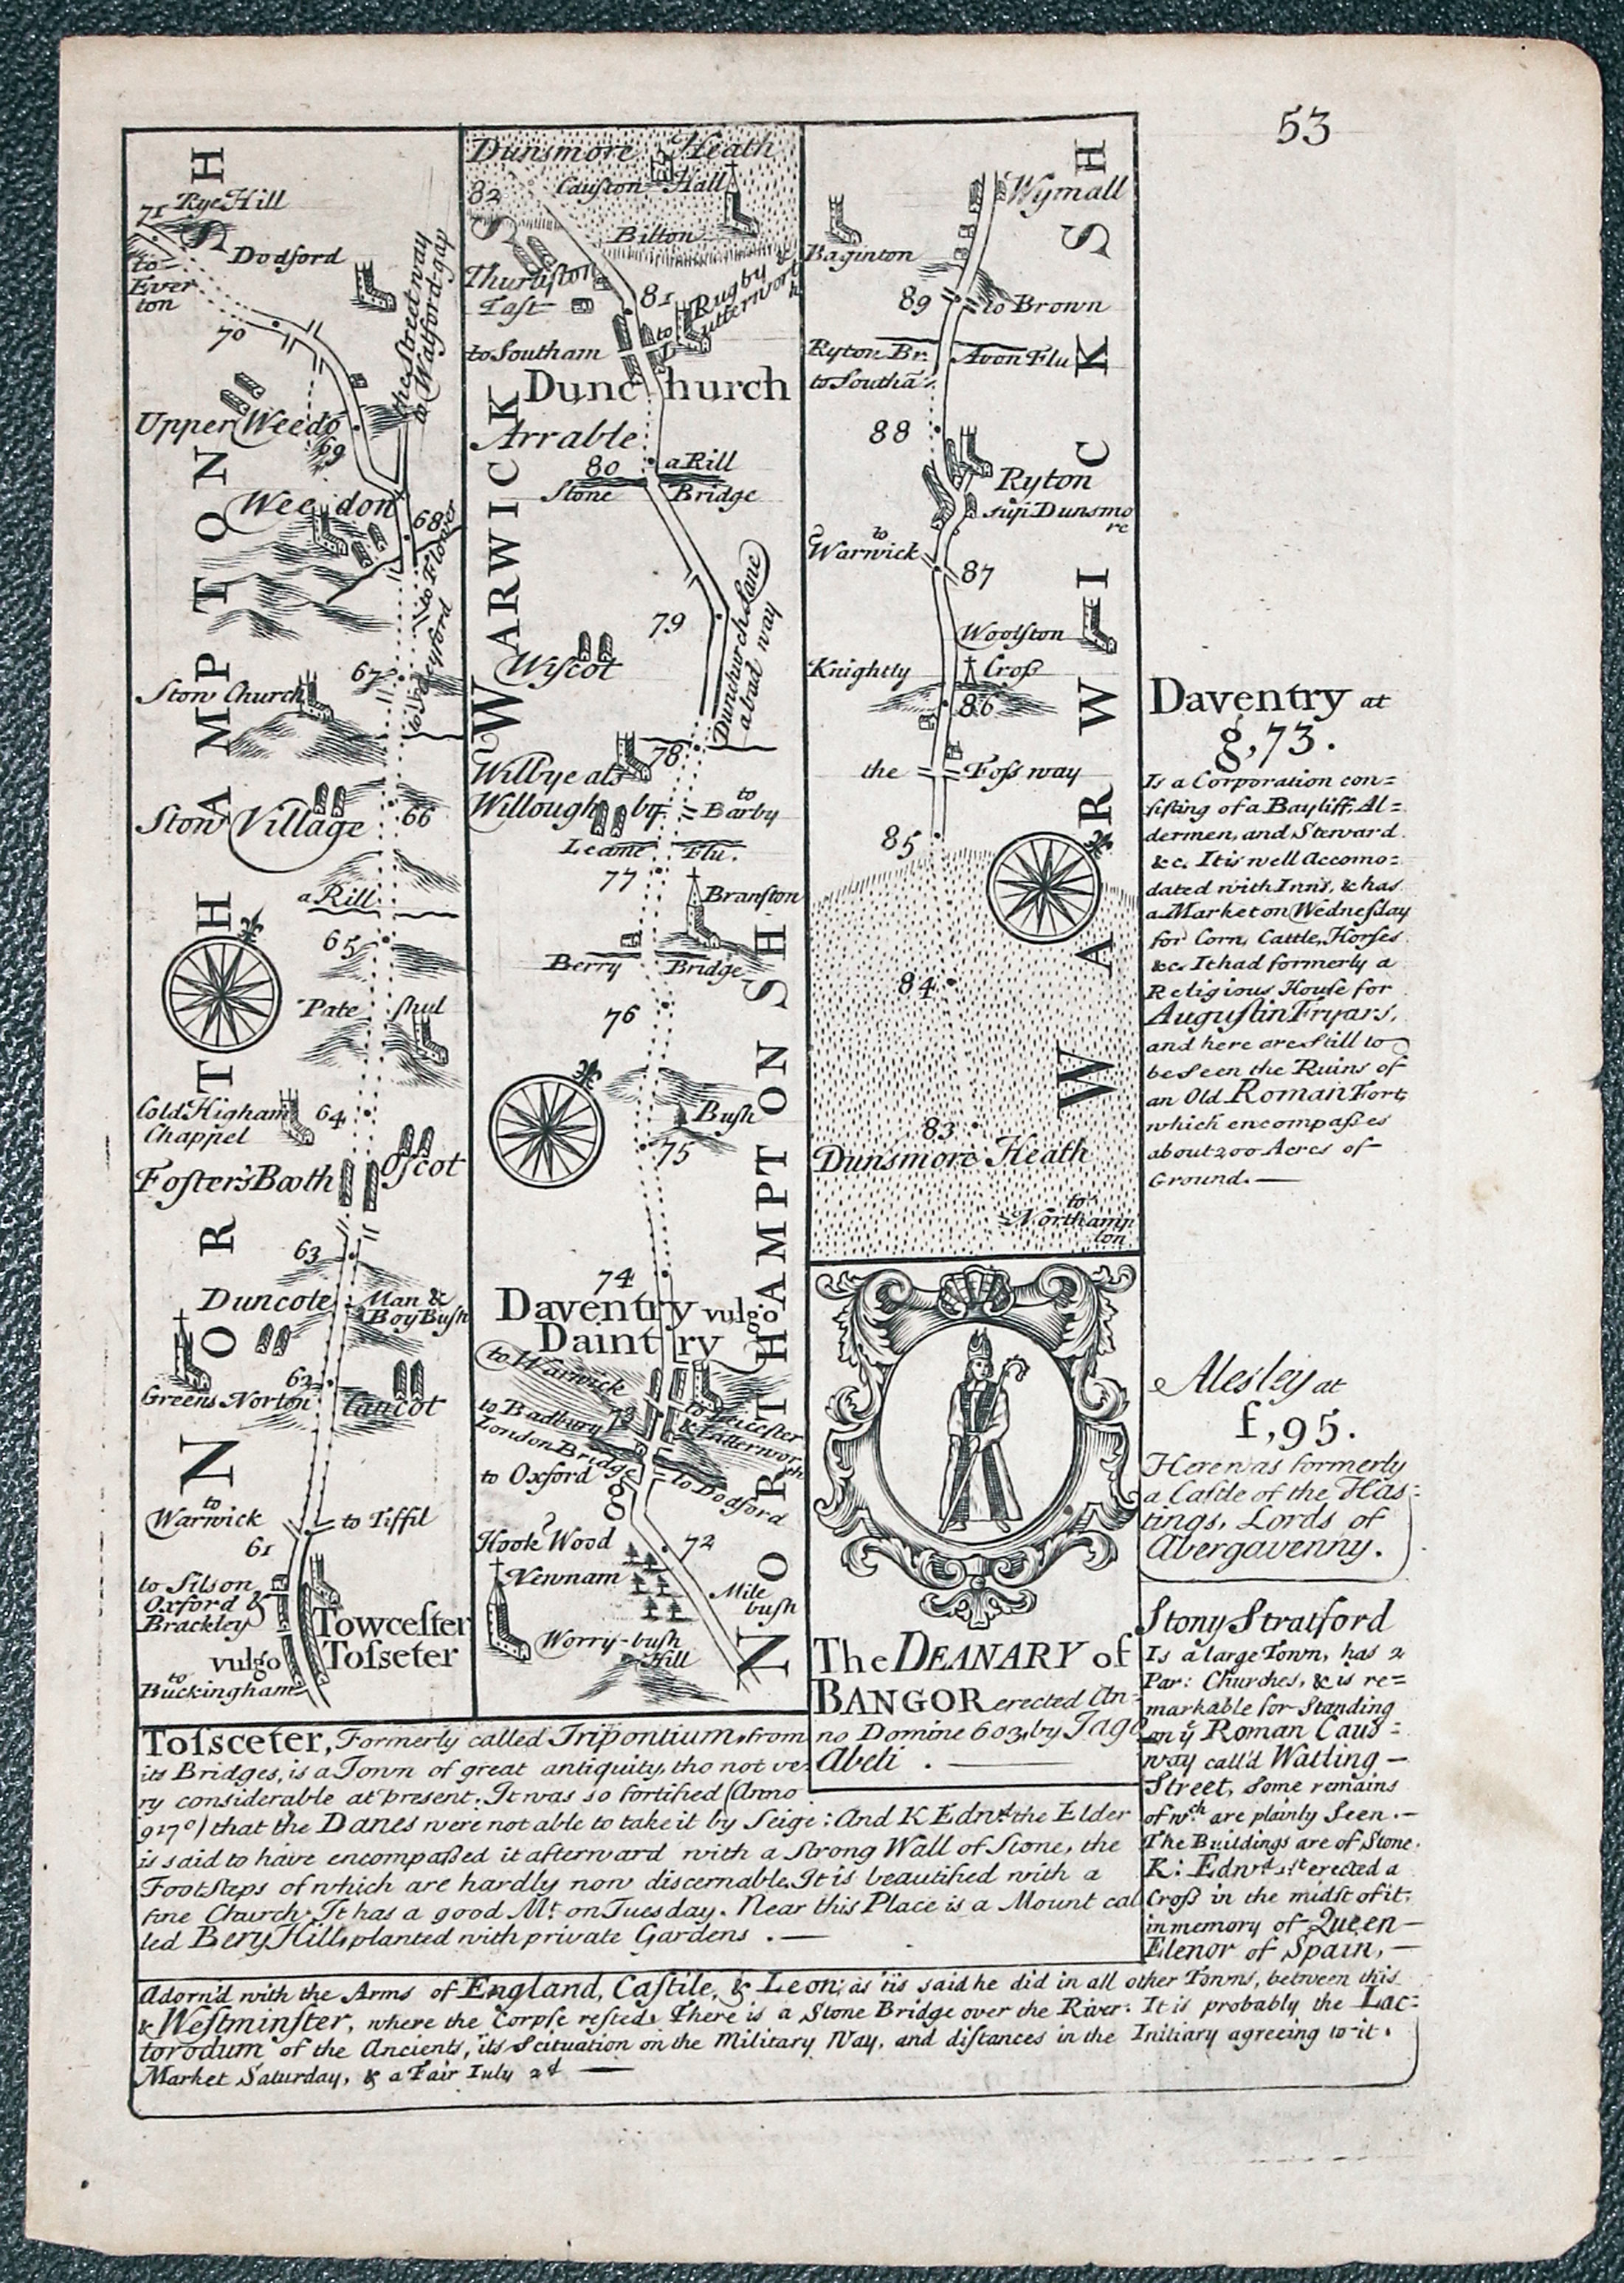 53
H
Rye Hill
71
S
to
Ever
ton
Dodford
the Street way
to Watford-gap
70
Upper Weedo
69
N
Weedon
68
to Flower
O
T
P
67
Stow Church
M
A
Stow Village
66
a Rill
H
65
Pate shul
T
Cold Higham
Chappel
64
Foster's Booth
Oscot
R
63
Duncote
Man &
Boy Bush
O
62
Greens Norton
Cancot
N
to
Warwick
to Tiffil
61
to Silson
Oxford &
Brackley
Towcester
vulgo Tosseter
to
Buckingham
Dunsmore Heath
82
Causton Hall
S
Bilton
Thurliston
Tast
81
to Rugby &
Lutterworth
to Southam
Dunchurch
Arrable
80
a Rill
Stone Bridge
WARWICK
79
Dunchurch Lane
a brad way
Wiscot
78
Wilbye als
Willoughby
to
Barby
Leame Flu.
77
Branston
Berry Bridge
76
Bush
75
74
Daventry vulgo
Daintry
to Warwick
to Badbury
73
to Leicester
& Lutterworth
London Bridge
to Oxford
to Dodford
g
Hook Wood
72
Newnam
Mile
bush
Worry-bush
Hill
NORTHAMPTON SH
Wymall
H
Baginton
S
89
to Brown
Ryton Br. Avon Flu
to Southā
K
88
Ryton
sup Dunsmo
re
C
to
Warwick
87
I
Woolston
Knightly Cross
86
W
the Foss way
R
85
A
84
W
83
Dunsmore Heath
to
Northamp
ton
The DEANARY of
BANGOR erected An=
no Domine 603, by Iago
Abeli .
Daventry at
g,73.
Is a Corporation con=
sisting of a Bayliff, Al=
dermen, and Steward
&c. It is well Accomo=
dated with Inns, & has
a Market on Wednesday
for Corn, Cattle, Horses
&c. It had formerly a
Religious House for
Augustin Fryars,
and here are Still to
be Seen the Ruins of
an Old Roman Fort,
which encompasses
about 200 Acres of
Ground.
Alesley at
f,95.
Here was formerly
a Castle of the Has=
tings, Lords of
Abergavenny.
Stony Stratford
Is a large Town, has 2
Par: Churches, & is re=
markable for Standing
on ye Roman Caus=
way call'd Watling
Street, some remains
of wch are plainly Seen.
The Buildings are of Stone.
K: Edwd 1st erected a
Cross in the midst of it,
in memory of Queen
Elenor of Spain,
Tosseter, Formerly called Tripontium, from
its Bridges, is a Town of great antiquity, tho not ve
ry considerable at present. It was so fortified (Anno
917o) that the Danes were not able to take it by Seige: And K Edwd the Elder
is said to have encompassed it afterward with a Strong Wall of Stone, the
Footsteps of which are hardly now discernable. It is beautified with a
fine Church. It has a good Mt. on Tuesday. Near this Place is a Mount cal
led Bery Hill, planted with private Gardens .
Adorn'd with the Arms of England, Castile, & Leon; as 'tis said he did in all other Towns, between this
& Westminster, where the Corpse rested. There is a Stone Bridge over the River. It is probably the Lac=
torodum of the Ancients, its Scituation on the Military Way, and distances in the Initiary agreeing to it.
Market Saturday, & a Fair July 2d